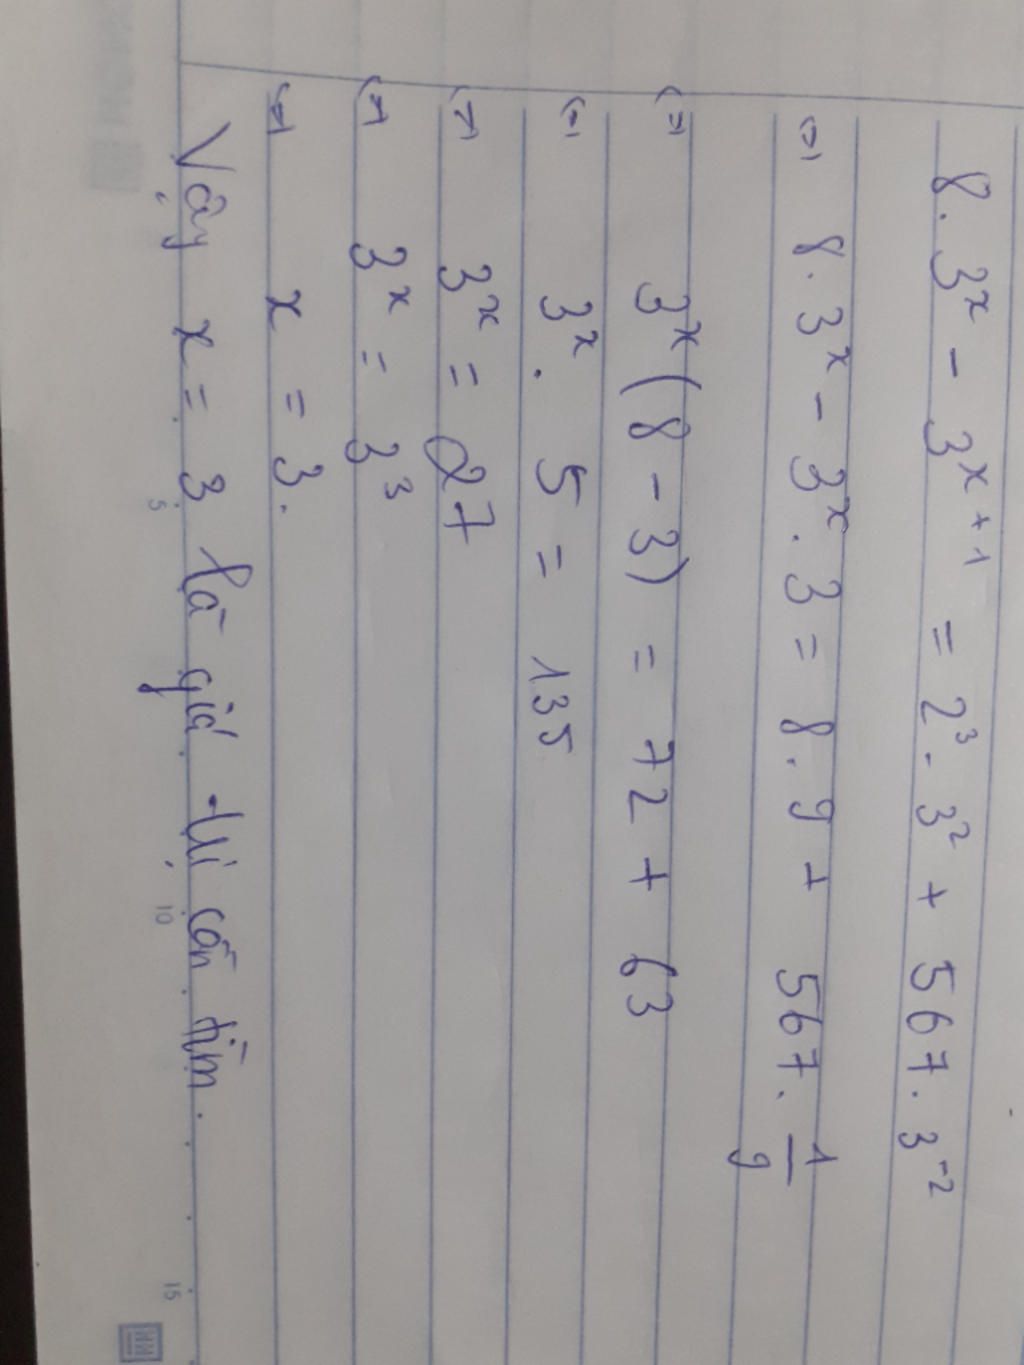 8. 3ˣ - 3ˣ⁺¹ = 2³. 3² + 567. 3⁻²
(=) 8. 3ˣ - 3ˣ. 3 = 8. 9 + 567. 1/9
(=) 3ˣ (8 - 3) = 72 + 63
(=) 3ˣ. 5 = 135
(=) 3ˣ = 27
(=) 3ˣ = 3³
(=) x = 3.
Vậy x = 3 là giá trị cần tìm.
5
10
15